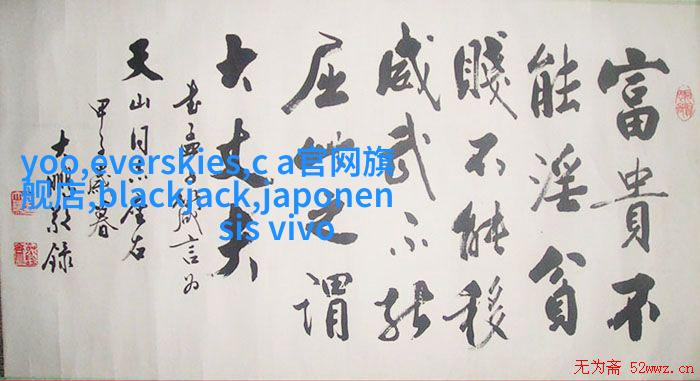 富貴不
能淫貧
賤不能移
威武不能
屈此之謂
大丈夫
書孟子箴言為
天山同志座右
甲子歲暮
大鵬敬錄
yoo,everskies,c a官网旗
舰店,blackjack,japonen
sis vivo
无为斋 52wwz.cn